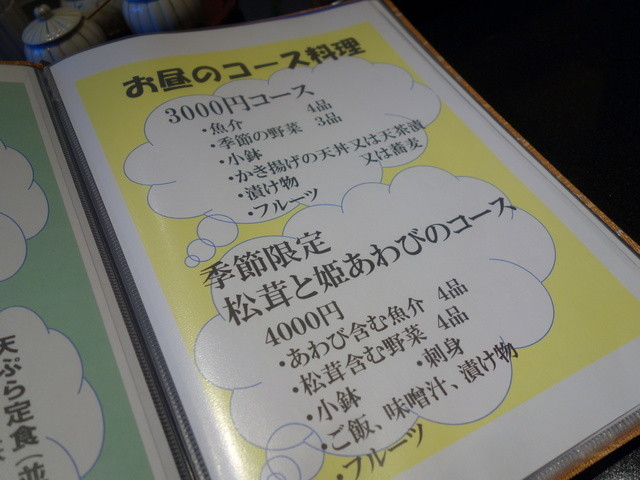 お昼のコース料理
3000円コース
・魚介 4品
・季節の野菜 3品
・小鉢
・かき揚げの天丼又は天茶漬
又は蕎麦
・漬け物
・フルーツ
季節限定
松茸と姫あわびのコース
4000円
・あわび含む魚介 4品
・松茸含む野菜 4品
・小鉢 ・刺身
・ご飯、味噌汁、漬け物
・フルーツ
天ぷら定食(並